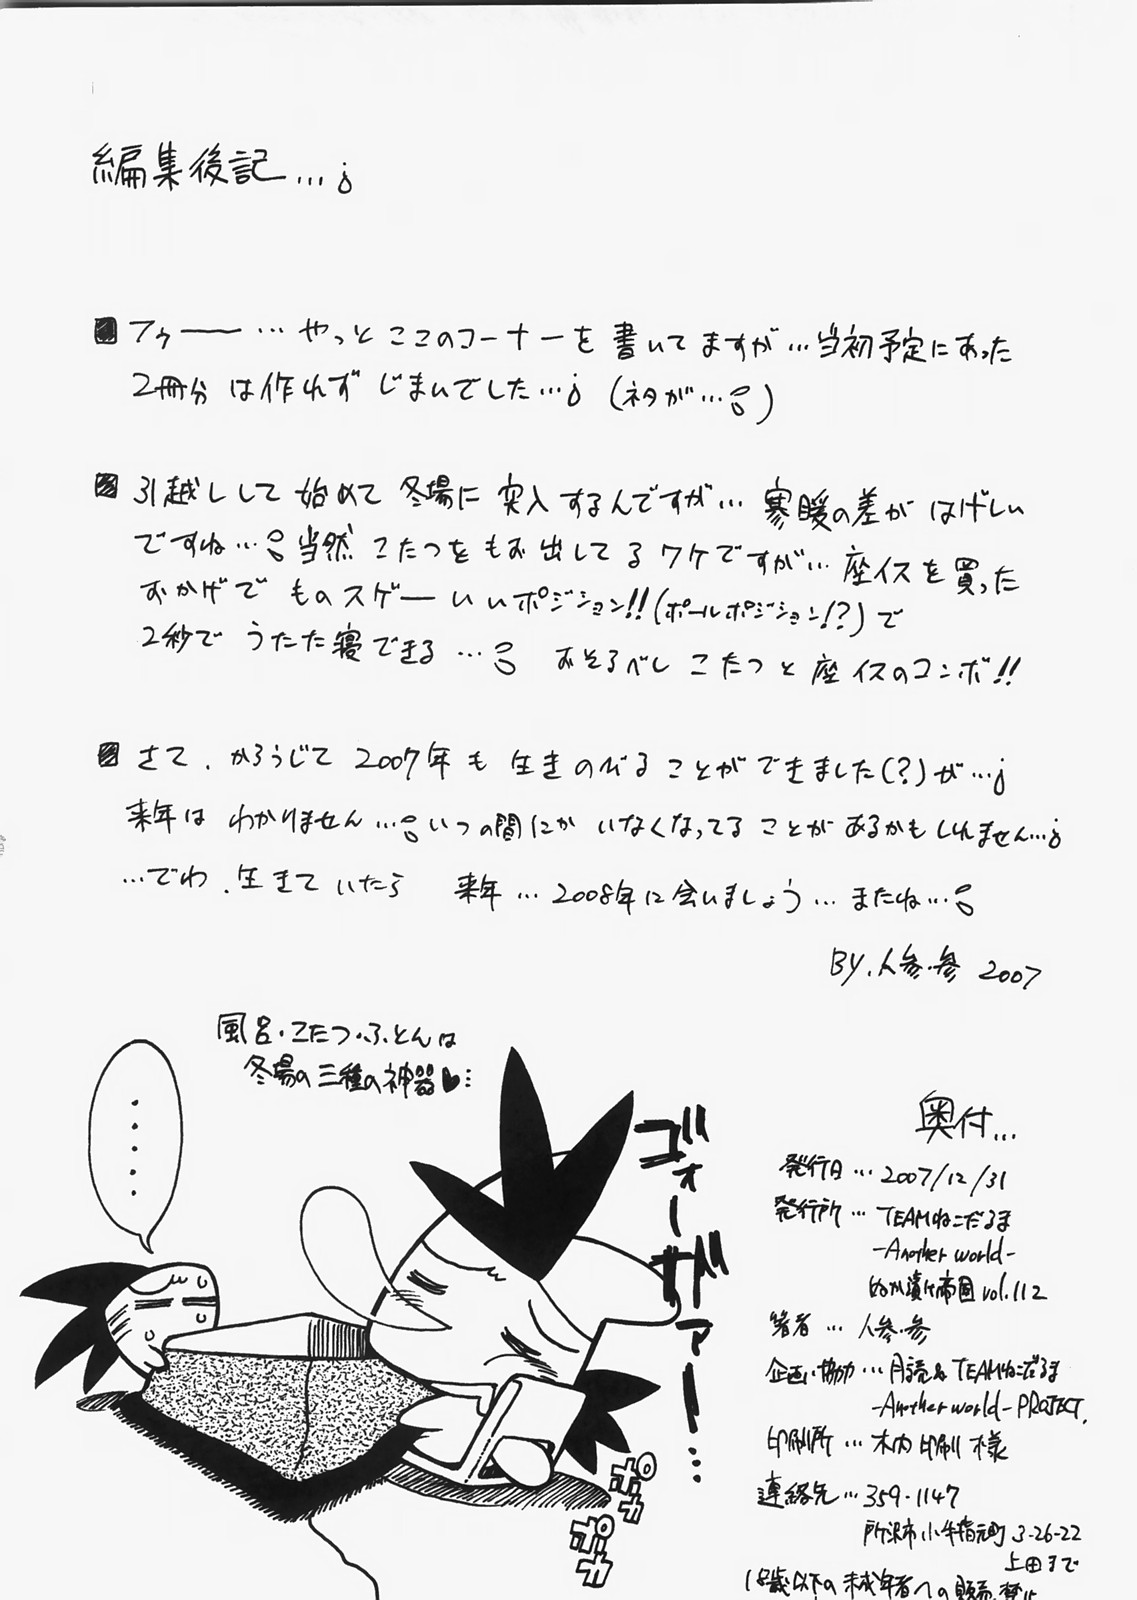 編集後記…
■フゥー…やっとここのコーナーを書いてますが…当初予定にあった
2冊分は作れずじまいでした…(ネタが…)
■引越しして始めて冬場に突入するんですが…寒暖の差がはげしい
ですね…当然こたつをもお出してるワケですが…座イスを買った
おかげでものスゲーいいポジション!!(ポールポジション!?)で
2秒でうたた寝できる…おそるべしこたつと座イスのコンボ!!
■さて、かろうじて2007年も生きのびることができました(?)が…
来年はわかりません…いつの間にかいなくなってることがあるかもしれません…
…でわ、生きていたら 来年…2008年に会いましょう…またね…
BY.人参.参 2007
風呂・こたつ・ふとんは
冬場の三種の神器♥…
……
ゴォーザァー…
ポカ
ポカ
奥付…
発行日…2007/12/31
発行所…TEAMねこだるま
-Another world-
ぬか漬け帝国 vol.112
著者…人参.参
企画・協力…月読&TEAMねこだるま
-Another world-PROJECT.
印刷所…木内印刷様
連絡先…359-1147
所沢市小手指元町3-26-22
上田まで
18歳以下の未成年者への販売禁止